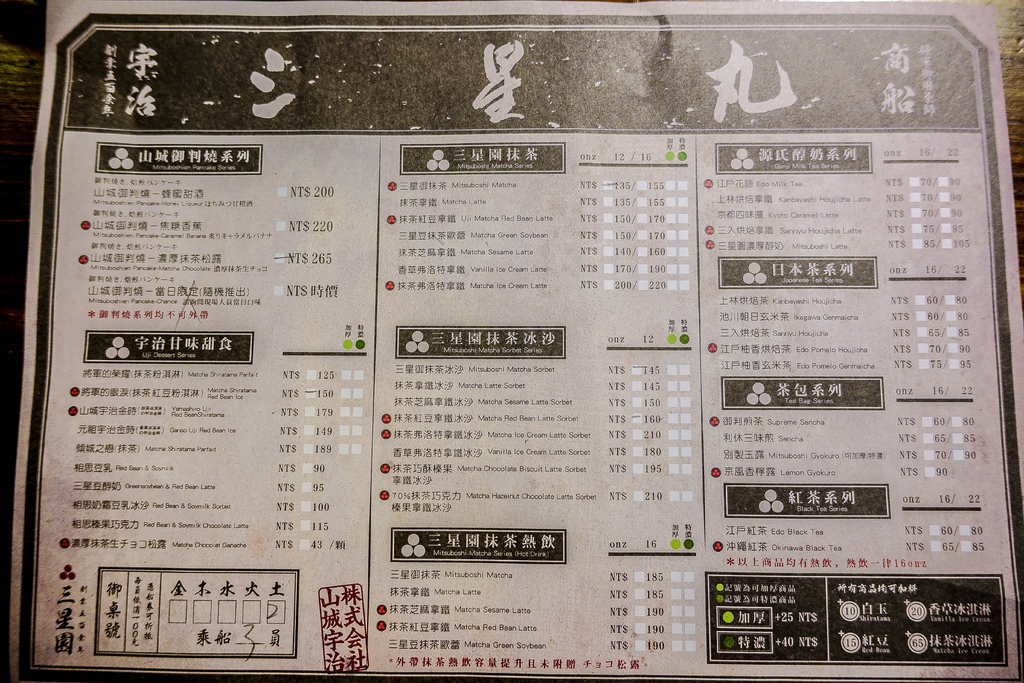 宇治
創業五百余年
三星丸
商船
山城御判燒系列
Mitsuboshien Pancake Series
御判焼き, 焙煎パンケーキ
山城御判燒－蜂蜜甜酒 NT$ 200
Mitsuboshien Pancake-Honey Liqueur はちみつ甘柑酒
御判焼き, 焙煎パンケーキ
山城御判燒－焦糖香蕉 NT$ 220
Mitsuboshien Pancake-Caramel Banana 炙りキャラメルバナナ
御判焼き, 焙煎パンケーキ
山城御判燒－濃厚抹茶松露 NT$ 265
Mitsuboshien Pancake-Matcha Chocolate 濃厚抹茶生チョコ
御判焼き, 焙煎パンケーキ
山城御判燒－當日限定(隨機推出) NT$ 時價
Mitsuboshien Pancake-Chance 請詢問現場人員當日口味
＊御判燒系列均不可外帶
宇治甘味甜食
Uji Dessert Series
加厚 特濃
將軍的榮耀(抹茶粉淇淋) Matcha Shiratama Parfait NT$ 125
將軍的眼淚(抹茶紅豆粉淇淋) Matcha Shiratama Red Bean Ice NT$ 150
山城宇治金時 Yamashiro Uji Red BeanShiratama NT$ 179
元祖宇治金時 Ganso Uji Red Bean Ice NT$ 149
傾城之戀(抹茶) Matcha Shiratama Parfait NT$ 189
相思豆乳 Red Bean & Soymilk NT$ 90
三星豆醇奶 Greensoybean & Red Bean Latte NT$ 95
相思奶霜豆乳冰沙 Red Bean & Soymilk Sorbet NT$ 100
相思榛果巧克力 Red Bean & Soymilk Chocolate Latte NT$ 115
濃厚抹茶生チョコ松露 Matcha Chocolat Ganache NT$ 43 /顆
創業五百余年
三星園
御桌號
憑船券可折抵
每員低消一100元
金 木 水 火 土
乘船 3 員
株式会社
山城宇治
三星園抹茶
Mitsuboshi Matcha Series
onz 12 / 16
加厚 特濃
三星御抹茶 Mitsuboshi Matcha NT$ 135/ 155
抹茶拿鐵 Matcha Latte NT$ 135/ 155
抹茶紅豆拿鐵 Uji Matcha Red Bean Latte NT$ 150/ 170
三星豆抹茶歐蕾 Matcha Green Soybean NT$ 150/ 170
抹茶芝麻拿鐵 Matcha Sesame Latte NT$ 140/ 160
香草弗洛特拿鐵 Vanilla Ice Cream Latte NT$ 170/ 190
抹茶弗洛特拿鐵 Matcha Ice Cream Latte NT$ 200/ 220
三星園抹茶冰沙
Mitsuboshi Matcha Sorbet Series
onz 12
加厚 特濃
三星御抹茶冰沙 Mitsuboshi Matcha Sorbet NT$ 145
抹茶拿鐵冰沙 Matcha Latte Sorbet NT$ 145
抹茶芝麻拿鐵冰沙 Matcha Sesame Latte Sorbet NT$ 150
抹茶紅豆拿鐵冰沙 Matcha Red Bean Latte Sorbet NT$ 160
抹茶弗洛特拿鐵冰沙 Matcha Ice Cream Latte Sorbet NT$ 210
香草弗洛特拿鐵冰沙 Vanilla Ice Cream Latte Sorbet NT$ 180
抹茶巧酥榛果拿鐵冰沙 Matcha Chocolate Biscuit Latte Sorbet NT$ 195
70%抹茶巧克力榛果拿鐵冰沙 Matcha Hazelnut Chocolate Latte Sorbet NT$ 210
三星園抹茶熱飲
Mitsuboshi Matcha Series (Hot Drink)
onz 16
加厚 特濃
三星御抹茶 Mitsuboshi Matcha NT$ 185
抹茶拿鐵 Matcha Latte NT$ 185
抹茶芝麻拿鐵 Matcha Sesame Latte NT$ 190
抹茶紅豆拿鐵 Matcha Red Bean Latte NT$ 190
三星豆抹茶歐蕾 Matcha Green Soybean NT$ 190
*外帶抹茶熱飲容量提升且未附贈 チョコ松露
源氏醇奶系列
Genji Milk Tea Series
onz 16/ 22
江戶花語 Edo Milk Tea NT$ 70/ 90
上林烘焙拿鐵 Kanbayashi Houjicha Latte NT$ 70/ 90
京都四味滙 Kyoto Caramel Latte NT$ 70/ 90
三入烘焙拿鐵 Sannyu Houjicha Latte NT$ 75/ 95
三星園濃厚醇奶 Mitsuboshi Latte NT$ 85/ 105
日本茶系列
Japanese Tea Series
onz 16/ 22
上林烘焙茶 Kanbayashi Houjicha NT$ 60/ 80
池川朝日玄米茶 Ikegawa Genmaicha NT$ 60/ 80
三入烘焙茶 Sannyu Houjicha NT$ 65/ 85
江戶柚香烘焙茶 Edo Pomelo Houjicha NT$ 70/ 90
江戶柚香玄米茶 Edo Pomelo Genmaicha NT$ 75/ 95
茶包系列
Tea Bag Series
onz 16/ 22
御判煎茶 Supreme Sencha NT$ 60/ 80
利休三味煎 Sencha NT$ 65/ 85
別製玉露 Mitsuboshi Gyokuro (可加厚/特濃) NT$ 70/ 90
京風香檸露 Lemon Gyokuro NT$ 90
紅茶系列
Black Tea Series
onz 16/ 22
江戶紅茶 Edo Black Tea NT$ 60/ 80
沖繩紅茶 Okinawa Black Tea NT$ 65/ 85
＊以上商品均有熱飲，熱飲一律16onz
記號為可加厚商品
記號為可特濃商品
加厚 +25 NT$
特濃 +40 NT$
所有商品均可加料
+10 白玉 Shiratama
+20 香草冰淇淋 Vanilla Ice Cream
+15 紅豆 Red Bean
+65 抹茶冰淇淋 Matcha Ice Cream